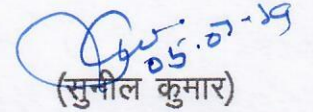 05.07.19
(सुनील कुमार)